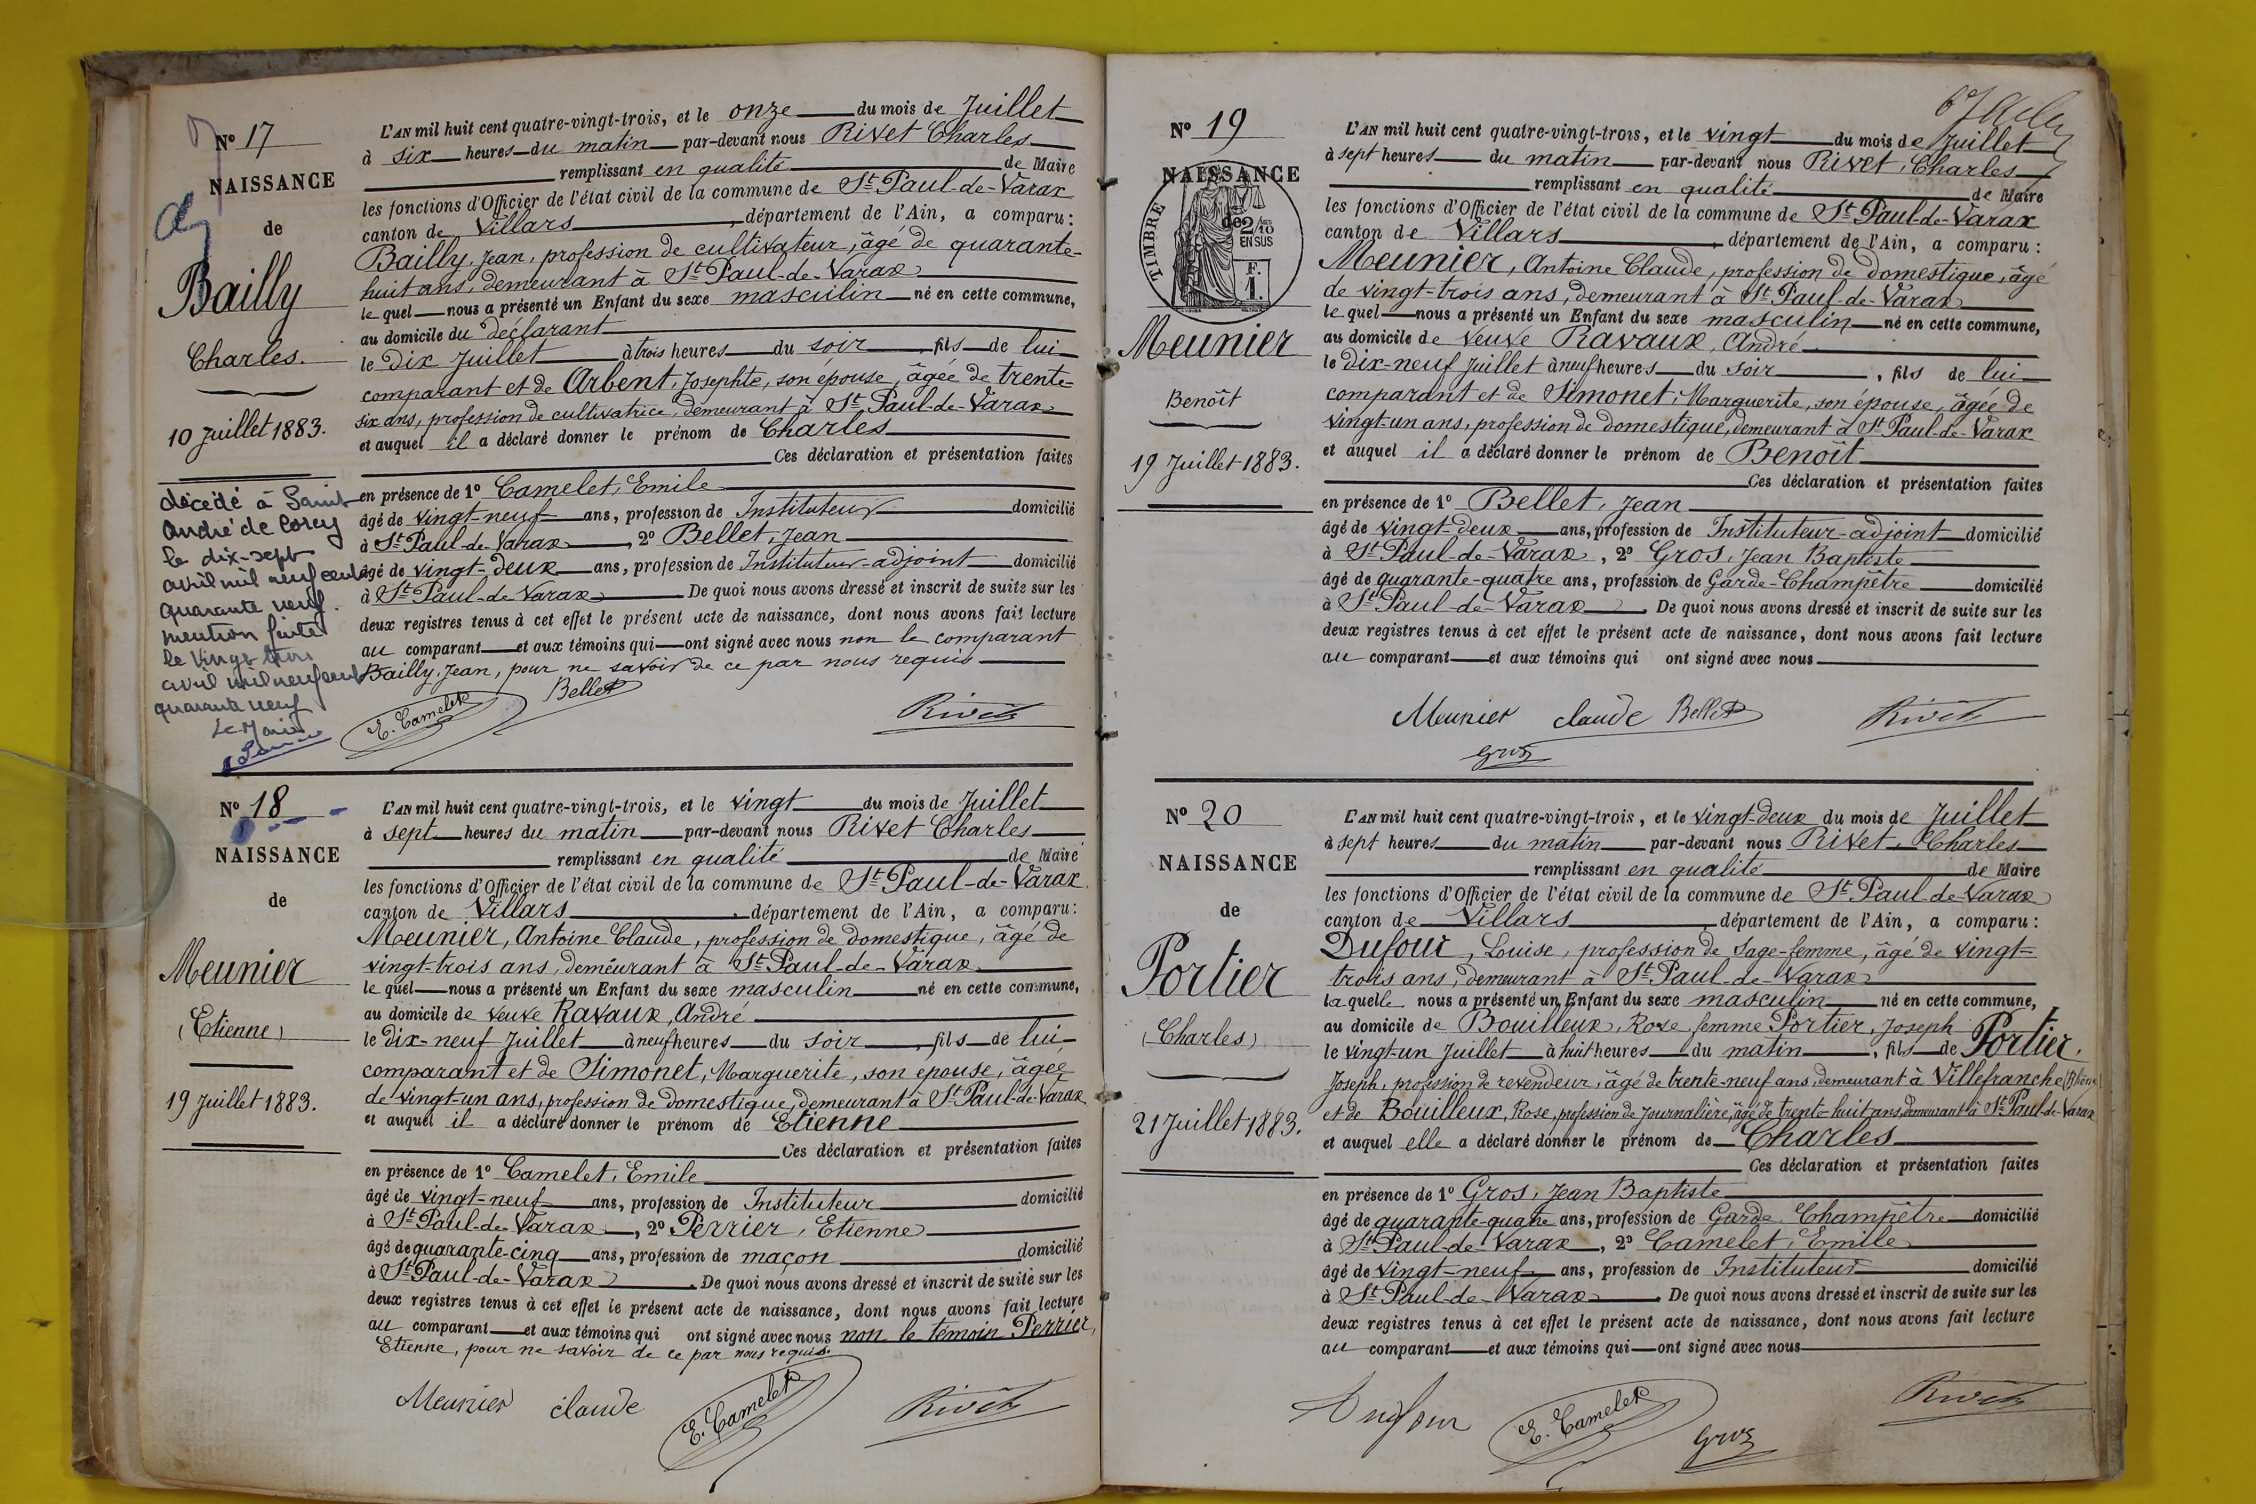 N° 17
NAISSANCE
de
Bailly
Charles.
10 Juillet 1883.
décédé à Saint
André de Corcy
le dix-sept
avril mil neuf cent
quarante neuf.
mention faite
le vingt trois
avril mil neuf cent
quarante neuf
Le Maire
L'AN mil huit cent quatre-vingt-trois, et le onze du mois de Juillet
à six heures du matin par-devant nous Rivet Charles
remplissant en qualité de Maire
les fonctions d'Officier de l'état civil de la commune de St Paul-de-Varax
canton de Villars, département de l'Ain, a comparu:
Bailly, Jean, profession de cultivateur, âgé de quarante-
huit ans, demeurant à St Paul-de-Varax
le quel nous a présenté un Enfant du sexe masculin né en cette commune,
au domicile du déclarant
le dix Juillet à trois heures du soir, fils de lui
comparant et de Arbent, Josephte, son épouse, âgée de trente-
six ans, profession de cultivatrice, demeurant à St Paul-de-Varax
et auquel il a déclaré donner le prénom de Charles
Ces déclaration et présentation faites
en présence de 1° Camelet, Emile
âgé de vingt-neuf ans, profession de Instituteur domicilié
à St Paul-de-Varax, 2° Bellet, Jean
âgé de vingt-deux ans, profession de Instituteur-adjoint domicilié
à St Paul-de-Varax. De quoi nous avons dressé et inscrit de suite sur les
deux registres tenus à cet effet le présent acte de naissance, dont nous avons fait lecture
au comparant et aux témoins qui ont signé avec nous non le comparant
Bailly, Jean, pour ne savoir de ce par nous requis
E. Camelet Bellet Rivet
N° 18
NAISSANCE
de
Meunier
(Etienne)
19 Juillet 1883.
L'AN mil huit cent quatre-vingt-trois, et le vingt du mois de Juillet
à sept heures du matin par-devant nous Rivet Charles
remplissant en qualité de Maire
les fonctions d'Officier de l'état civil de la commune de St Paul-de-Varax
canton de Villars, département de l'Ain, a comparu:
Meunier, Antoine Claude, profession de domestique, âgé de
vingt-trois ans, demeurant à St Paul-de-Varax
le quel nous a présenté un Enfant du sexe masculin né en cette commune,
au domicile de veuve Ravaux, André
le dix-neuf Juillet à neuf heures du soir, fils de lui
comparant et de Simonet, Marguerite, son épouse, âgée
de vingt-un ans, profession de domestique, demeurant à St Paul-de-Varax
et auquel il a déclaré donner le prénom de Etienne
Ces déclaration et présentation faites
en présence de 1° Camelet, Emile
âgé de vingt-neuf ans, profession de Instituteur domicilié
à St Paul-de-Varax, 2° Perrier, Etienne
âgé de quarante-cinq ans, profession de maçon domicilié
à St Paul-de-Varax. De quoi nous avons dressé et inscrit de suite sur les
deux registres tenus à cet effet le présent acte de naissance, dont nous avons fait lecture
au comparant et aux témoins qui ont signé avec nous non le témoin Perrier,
Etienne, pour ne savoir de ce par nous requis.
Meunier claude E. Camelet Rivet
N° 19
NAISSANCE
de
TIMBRE
2/10
EN SUS
F.
1.
Meunier
Benoît
19 Juillet 1883.
L'AN mil huit cent quatre-vingt-trois, et le vingt du mois de Juillet
à sept heures du matin par-devant nous Rivet, Charles
remplissant en qualité de Maire
les fonctions d'Officier de l'état civil de la commune de St Paul-de-Varax
canton de Villars, département de l'Ain, a comparu:
Meunier, Antoine Claude, profession de domestique, âgé
de vingt-trois ans, demeurant à St Paul-de-Varax
le quel nous a présenté un Enfant du sexe masculin né en cette commune,
au domicile de veuve Ravaux, André
le dix-neuf Juillet à neuf heures du soir, fils de lui
comparant et de Simonet, Marguerite, son épouse, âgée de
vingt-un ans, profession de domestique, demeurant à St Paul-de-Varax
et auquel il a déclaré donner le prénom de Benoît
Ces déclaration et présentation faites
en présence de 1° Bellet, Jean
âgé de vingt-deux ans, profession de Instituteur-adjoint domicilié
à St Paul-de-Varax, 2° Gros, Jean Baptiste
âgé de quarante-quatre ans, profession de Garde-Champêtre domicilié
à St Paul-de-Varax. De quoi nous avons dressé et inscrit de suite sur les
deux registres tenus à cet effet le présent acte de naissance, dont nous avons fait lecture
au comparant et aux témoins qui ont signé avec nous
Meunier claude Bellet Rivet
Gros
N° 20
NAISSANCE
de
Portier
(Charles)
21 Juillet 1883.
L'AN mil huit cent quatre-vingt-trois, et le vingt-deux du mois de Juillet
à sept heures du matin par-devant nous Rivet, Charles
remplissant en qualité de Maire
les fonctions d'Officier de l'état civil de la commune de St Paul-de-Varax
canton de Villars, département de l'Ain, a comparu:
Dufour, Louise, profession de Sage-femme, âgé de vingt-
trois ans, demeurant à St Paul-de-Varax
laquelle nous a présenté un Enfant du sexe masculin né en cette commune,
au domicile de Bouilleux, Rose femme Portier, Joseph
le vingt-un Juillet à huit heures du matin, fils de Portier.
Joseph, profession de revendeur, âgé de trente-neuf ans, demeurant à Villefranche (Rhône)
et de Bouilleux, Rose, profession de Journalière, âgé de trente-huit ans, demeurant à St Paul-de-Varax
et auquel elle a déclaré donner le prénom de Charles
Ces déclaration et présentation faites
en présence de 1° Gros, Jean Baptiste
âgé de quarante-quatre ans, profession de Garde Champêtre domicilié
à St Paul-de-Varax, 2° Camelet, Emile
âgé de vingt-neuf ans, profession de Instituteur domicilié
à St Paul-de-Varax. De quoi nous avons dressé et inscrit de suite sur les
deux registres tenus à cet effet le présent acte de naissance, dont nous avons fait lecture
au comparant et aux témoins qui ont signé avec nous
Dufour E. Camelet Gros Rivet